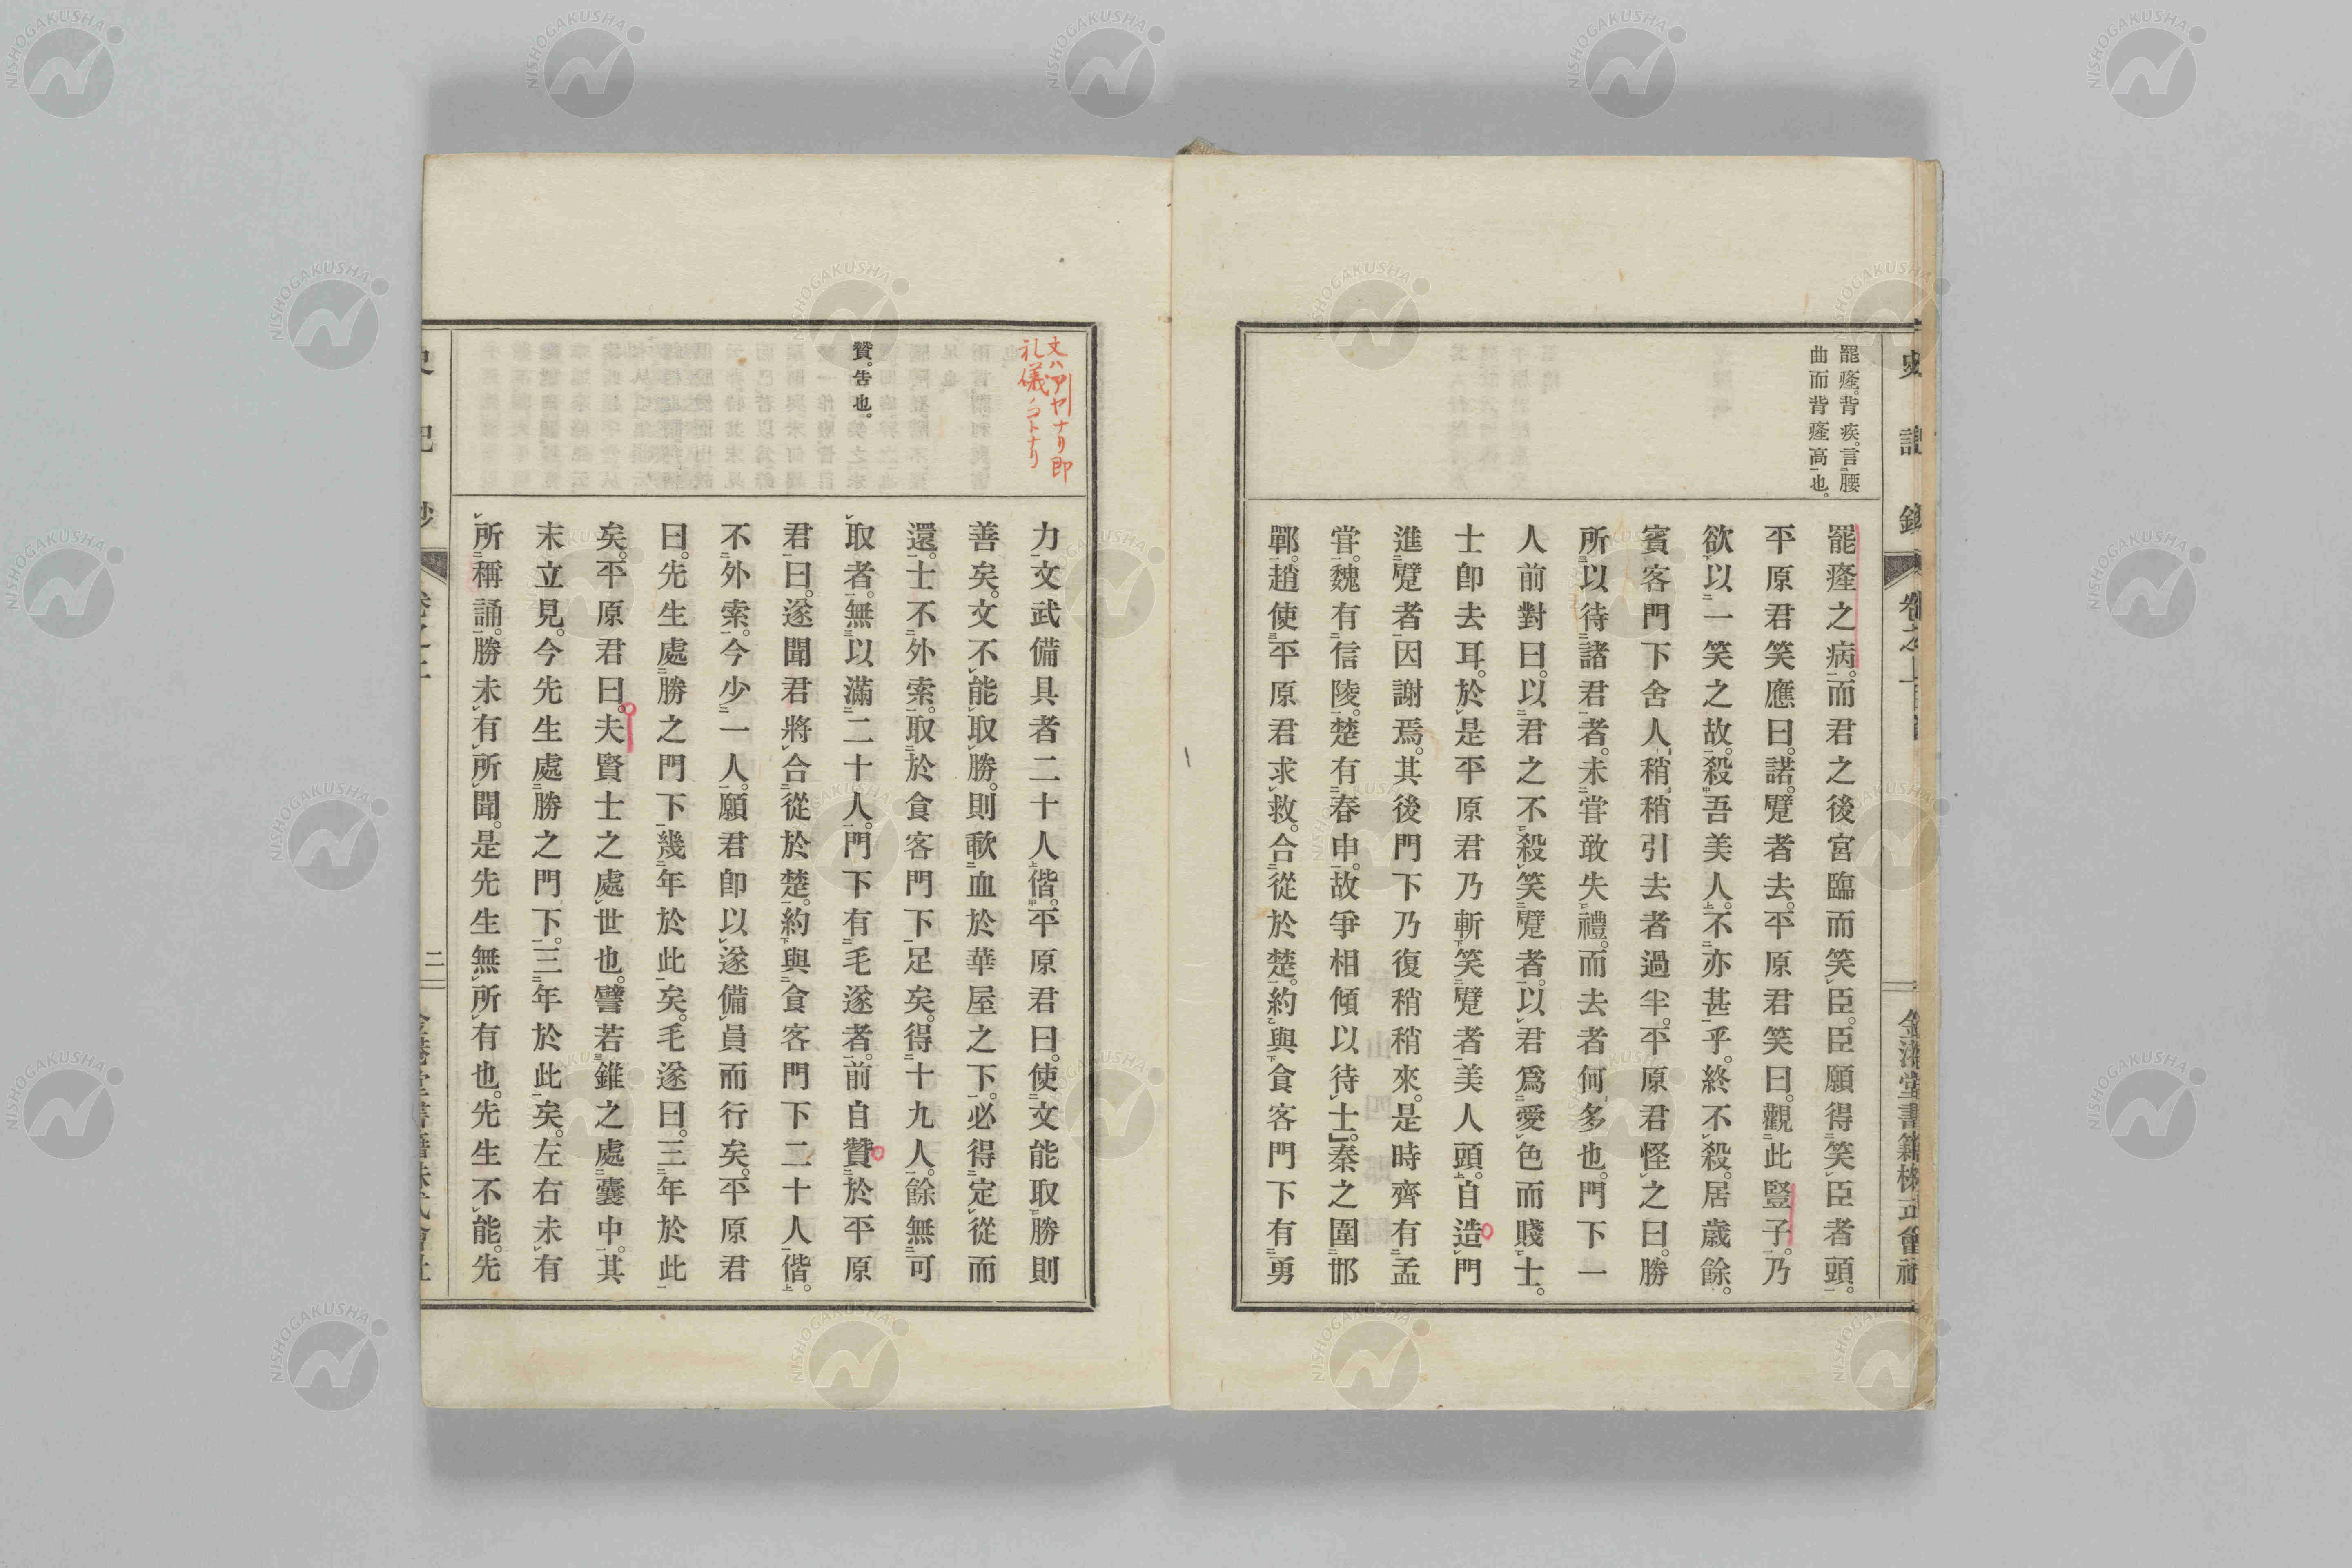 罷癃。背疾。言腰
曲而背癃高也。
罷癃之病。而君之後宮臨而笑臣。臣願得笑臣者頭。
平原君笑應曰。諾。躄者去。平原君笑曰。觀此豎子。乃
欲以一笑之故。殺吾美人。不亦甚乎。終不殺。居歲餘。
賓客門下舍人。稍稍引去者過半。平原君怪之曰。勝
所以待諸君者。未嘗敢失禮。而去者何多也。門下一
人前對曰。以君之不殺笑躄者。以君爲愛色而賤士。
士卽去耳。於是平原君乃斬笑躄者美人頭。自造門
進躄者。因謝焉。其後門下乃復稍稍來。是時齊有孟
嘗。魏有信陵。楚有春申。故爭相傾以待士。秦之圍邯
鄲。趙使平原君求救。合從於楚。約與食客門下有勇
文ハアヤナリ即
礼儀ノコトナリ
贊。告也。
力文武備具者二十人偕。平原君曰。使文能取勝則
善矣。文不能取勝。則歃血於華屋之下。必得定從而
還。士不外索。取於食客門下足矣。得十九人。餘無可
取者。無以滿二十人。門下有毛遂者。前自贊於平原
君曰。遂聞君將合從於楚。約與食客門下二十人偕。
不外索。今少一人。願君卽以遂備員而行矣。平原君
曰。先生處勝之門下。幾年於此矣。毛遂曰。三年於此
矣。平原君曰。夫賢士之處世也。譬若錐之處囊中。其
末立見。今先生處勝之門下。三年於此矣。左右未有
所稱誦。勝未有所聞。是先生無所有也。先生不能。先
二
NISHOGAKUSHA